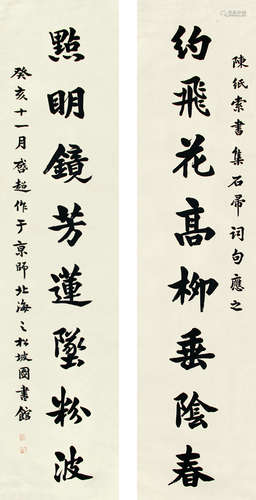 陳紙索書集石帚詞句應之
約飛花高柳垂陰春
點明鏡芳蓮墜粉波
癸亥十一月啓超作于京師北海之松坡圖書館